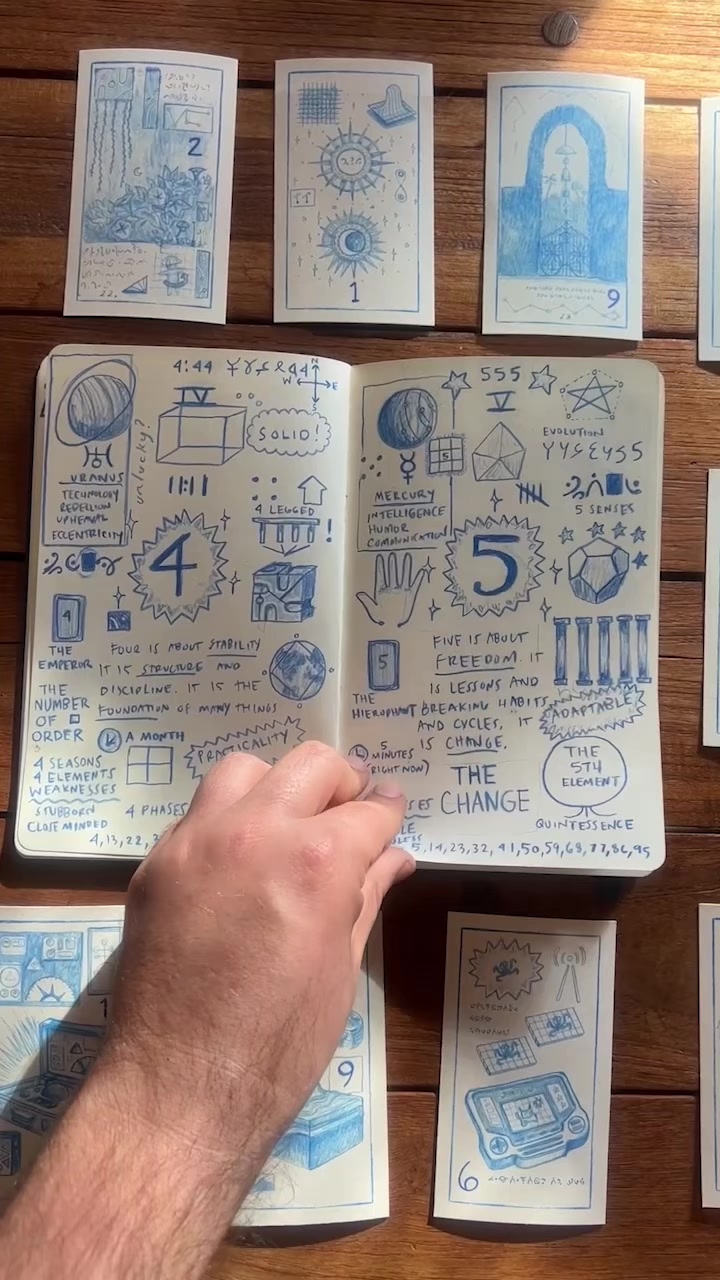 2
1
9
4:44
N
W E
S
IV
SOLID!
unlucky?
URANUS
TECHNOLOGY
REBELLION
UPHEAVAL
ECCENTRICITY
11:11
4 LEGGED
!
4
4
THE
EMPEROR
FOUR IS ABOUT STABILITY
IT IS STRUCTURE AND
DISCIPLINE. IT IS THE
FOUNDATION OF MANY THINGS
THE
NUMBER
OF
ORDER
A MONTH
PRACTICALITY
4 SEASONS
4 ELEMENTS
WEAKNESSES
STUBBORN
CLOSE MINDED
4 PHASES
4, 13, 22,
555
V
EVOLUTION
5
MERCURY
INTELLIGENCE
HUMOR
COMMUNICATION
5 SENSES
5
5
THE
HIEROPHANT
FIVE IS ABOUT
FREEDOM. IT
IS LESSONS AND
BREAKING HABITS
AND CYCLES. IT
IS CHANGE.
ADAPTABLE
5
MINUTES
(RIGHT NOW)
THE
CHANGE
THE
5TH
ELEMENT
QUINTESSENCE
5, 14, 23, 32, 41, 50, 59, 68, 77, 86, 95
1
9
6